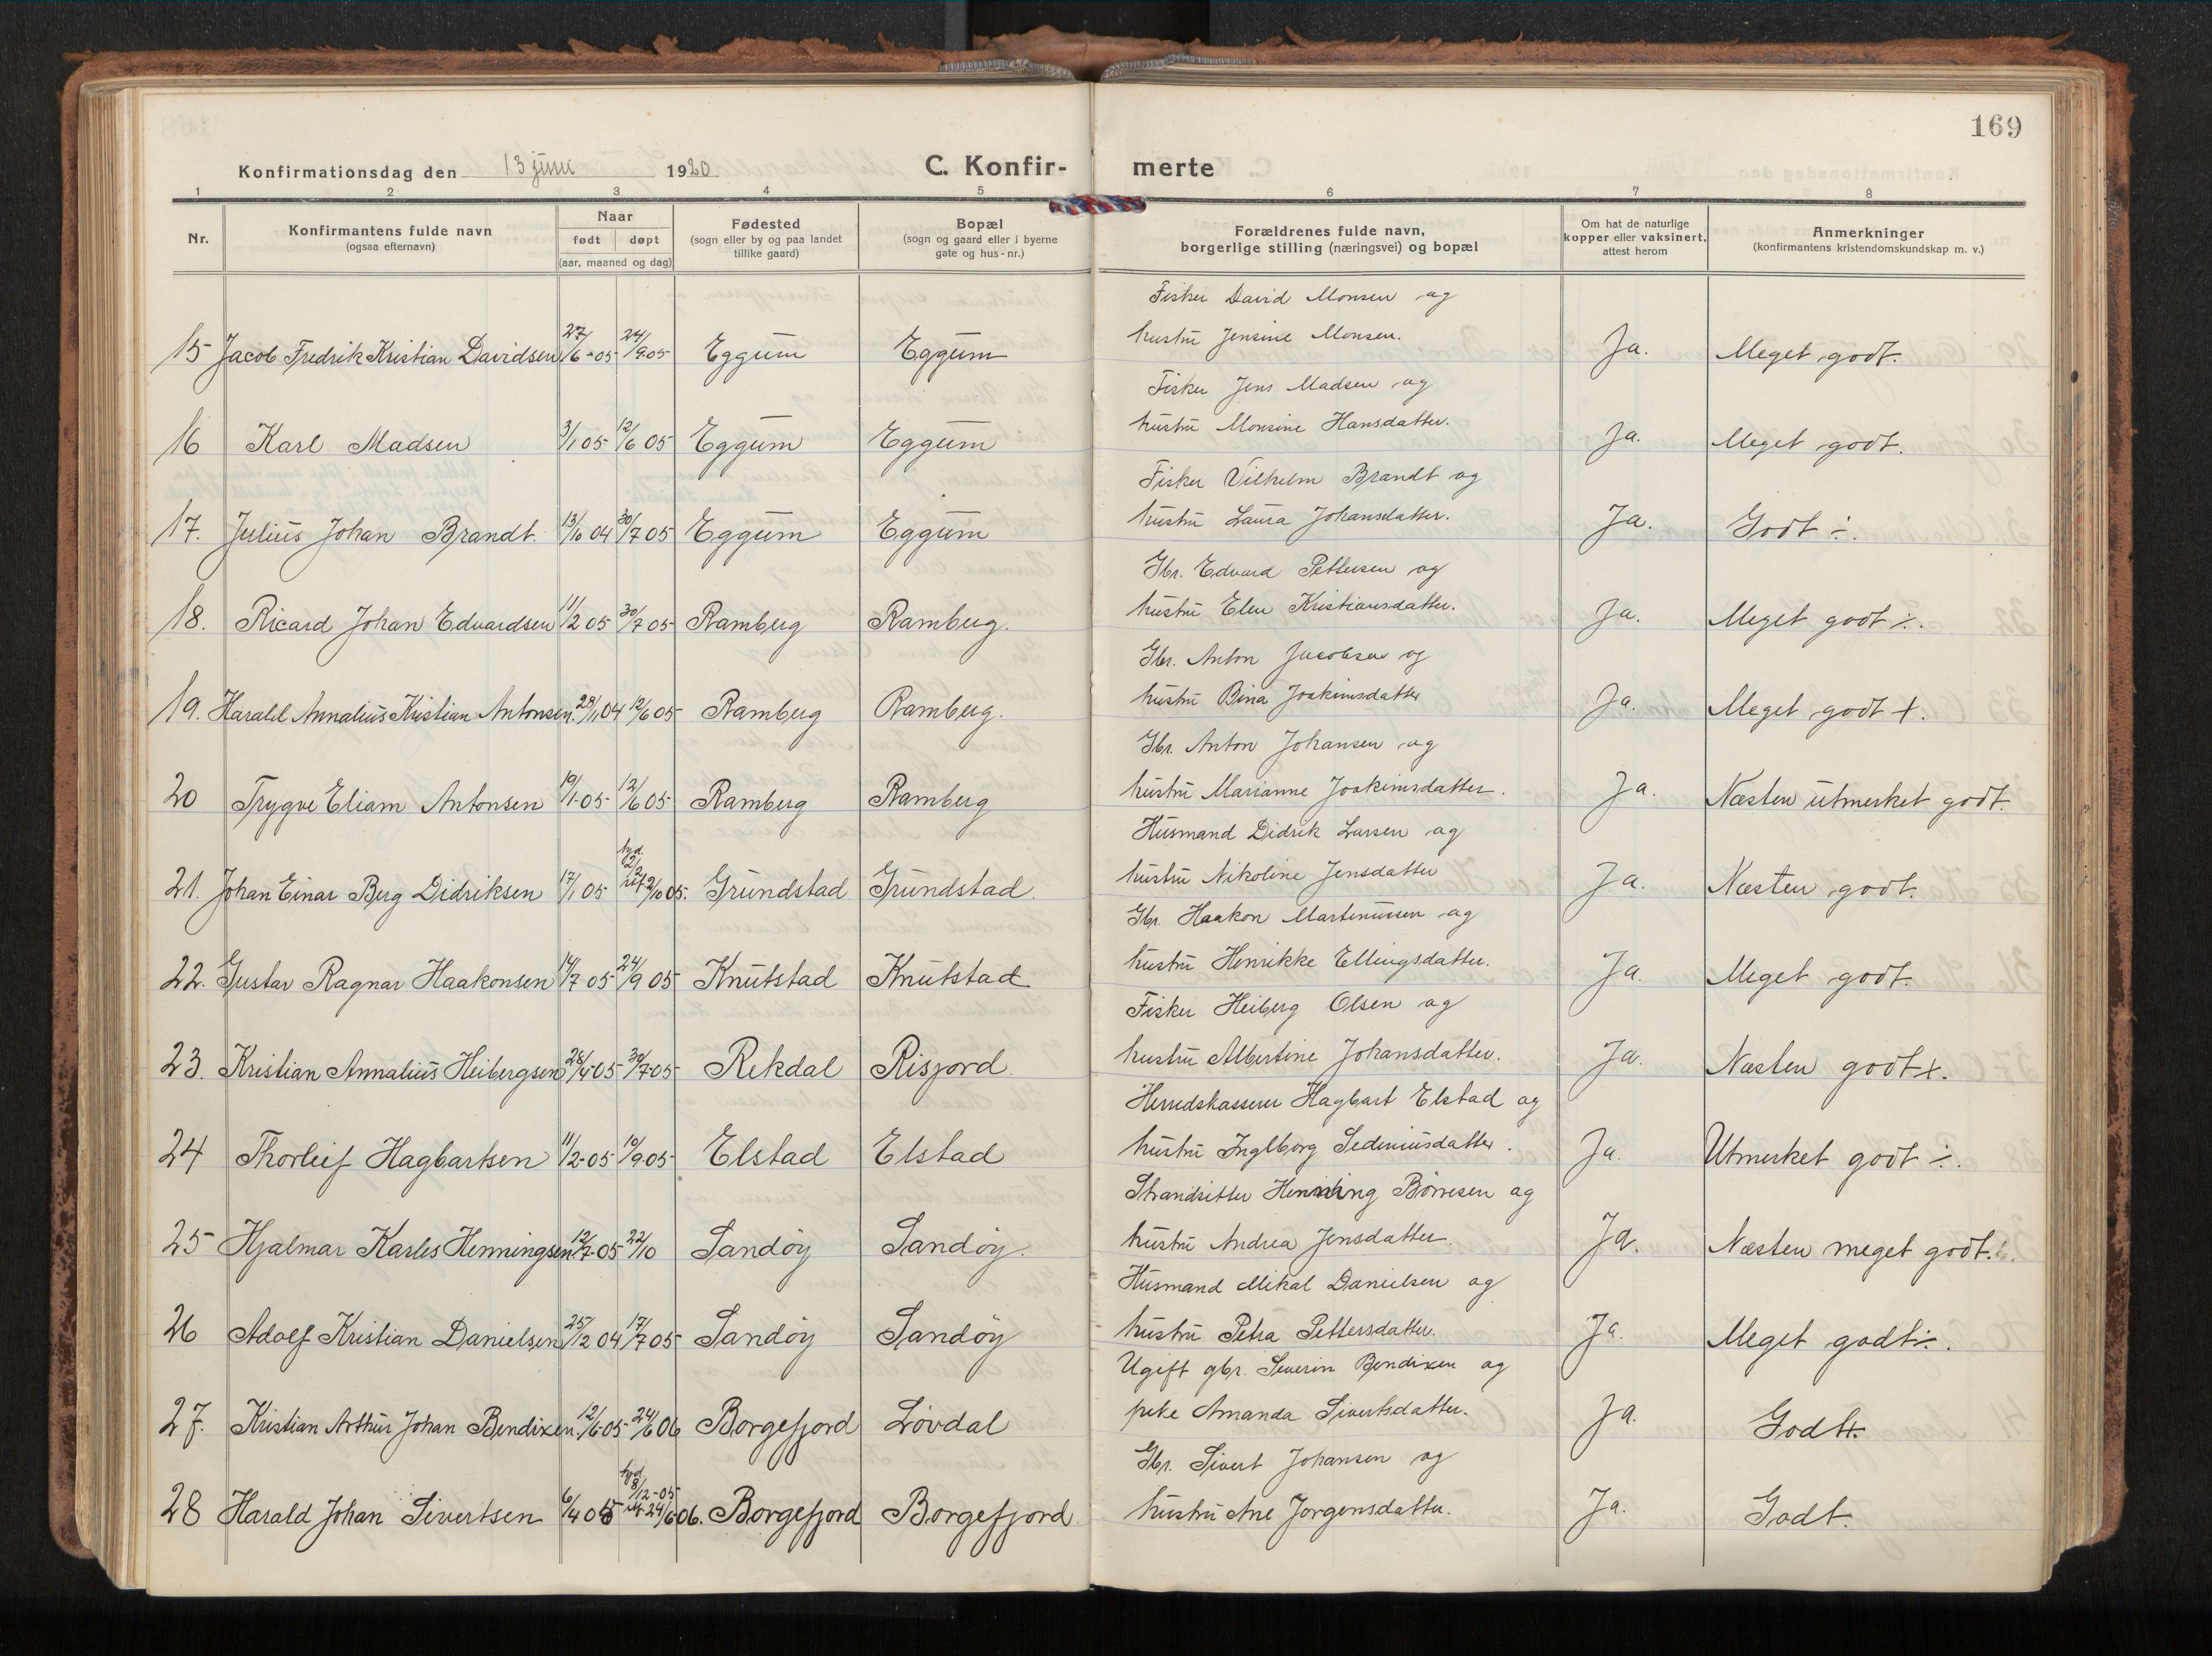 169
Konfirmationsdag den 13 juni 1920
C. Konfir- merte
1 2 3 4 5 6 7 8
Nr.
Konfirmantens fulde navn
(ogsaa efternavn)
Naar
født døpt
(aar, maaned og dag)
Fødested
(sogn eller by og paa landet
tillike gaard)
Bopæl
(sogn og gaard eller i byerne
gate og hus-nr.)
Forældrenes fulde navn,
borgerlige stilling (næringsvei) og bopæl
Om hat de naturlige
kopper eller vaksinert,
attest herom
Anmerkninger
(konfirmantens kristendomskundskap m. v.)
Fisker David Monsen og
15 Jacob Fredrik Kristian Davidsen 27/6-05 24/9 05 Eggum Eggum hustru Jensine Monsen. Ja. Meget godt.
Fisker Jens Madsen og
16 Karl Madsen 3/1 05 12/6 05 Eggum Eggum hustru Monsine Hansdatter. Ja. Meget godt.
Fisker Vilhelm Brandt og
17. Julius Johan Brandt. 13/10 04 30/7 05 Eggum Eggum hustru Laura Johansdatter. Ja. Godt ÷.
Gbr. Edvard Pettersen og
18. Ricard Johan Edvardsen 11/2 05 30/7 05 Ramberg Ramberg. hustru Elen Kristiansdatter. Ja. Meget godt ÷.
Gbr. Anton Jacobsen og
19. Harald Annalius Kristian Antonsen. 28/11 04 12/6 05 Ramberg Ramberg. hustru Bina Joakimsdatter Ja. Meget godt +.
Gbr. Anton Johansen og
20 Trygve Eliam Antonsen 19/1-05 12/6 05 Ramberg Ramberg hustru Marianne Joakimsdatter. Ja. Næsten utmerket godt.
Husmand Didrik Larsen og
21. Johan Einar Berg Didriksen 17/1 05 2/10 05. Grundstad Grundstad. hustru Nikoline Jensdatter Ja. Næsten godt.
Gbr. Haakon Martinussen og
22. Gustav Ragnar Haakonsen 14/7 05 24/9 05 Knutstad Knutstad hustru Henrikke Ellingsdatter. Ja. Meget godt.
Fisker Heiberg Olsen og
23. Kristian Annalius Heibergsen 28/4-05 30/7-05 Rekdal Risjord. hustru Albertine Johansdatter. Ja. Næsten godt +.
Herredskasserer Hagbart Elstad og
24 Thorleif Hagbartsen 11/2-05 10/9-05 Elstad Elstad hustru Ingeborg Sedeniusdatter. Ja. Utmerket godt ÷.
Strandsitter Henning Børresen og
25 Hjalmar Karles Henningsen. 12/7-05 22/10 Sandøy Sandøy. hustru Andrea Jensdatter. Ja. Næsten meget godt.
Husmand Mikal Danielsen og
26 Adolf Kristian Danielsen 25/12 04 17/7 05 Sandøy Sandøy hustru Petra Pettersdatter. Ja. Meget godt ÷.
Ugift gbr. Severin Bendixen og
27. Kristian Arthur Johan Bendixen. 12/6-05 24/6 06 Borgefjord Løvdal pike Amanda Sivertsdatter. Ja. Godt +.
Gbr. Sivert Johansen og
28 Harald Johan Sivertsen 6/4 05 8/12-05 24/6 06. Borgefjord Borgefjord hustru Ane Jørgensdatter. Ja. Godt.